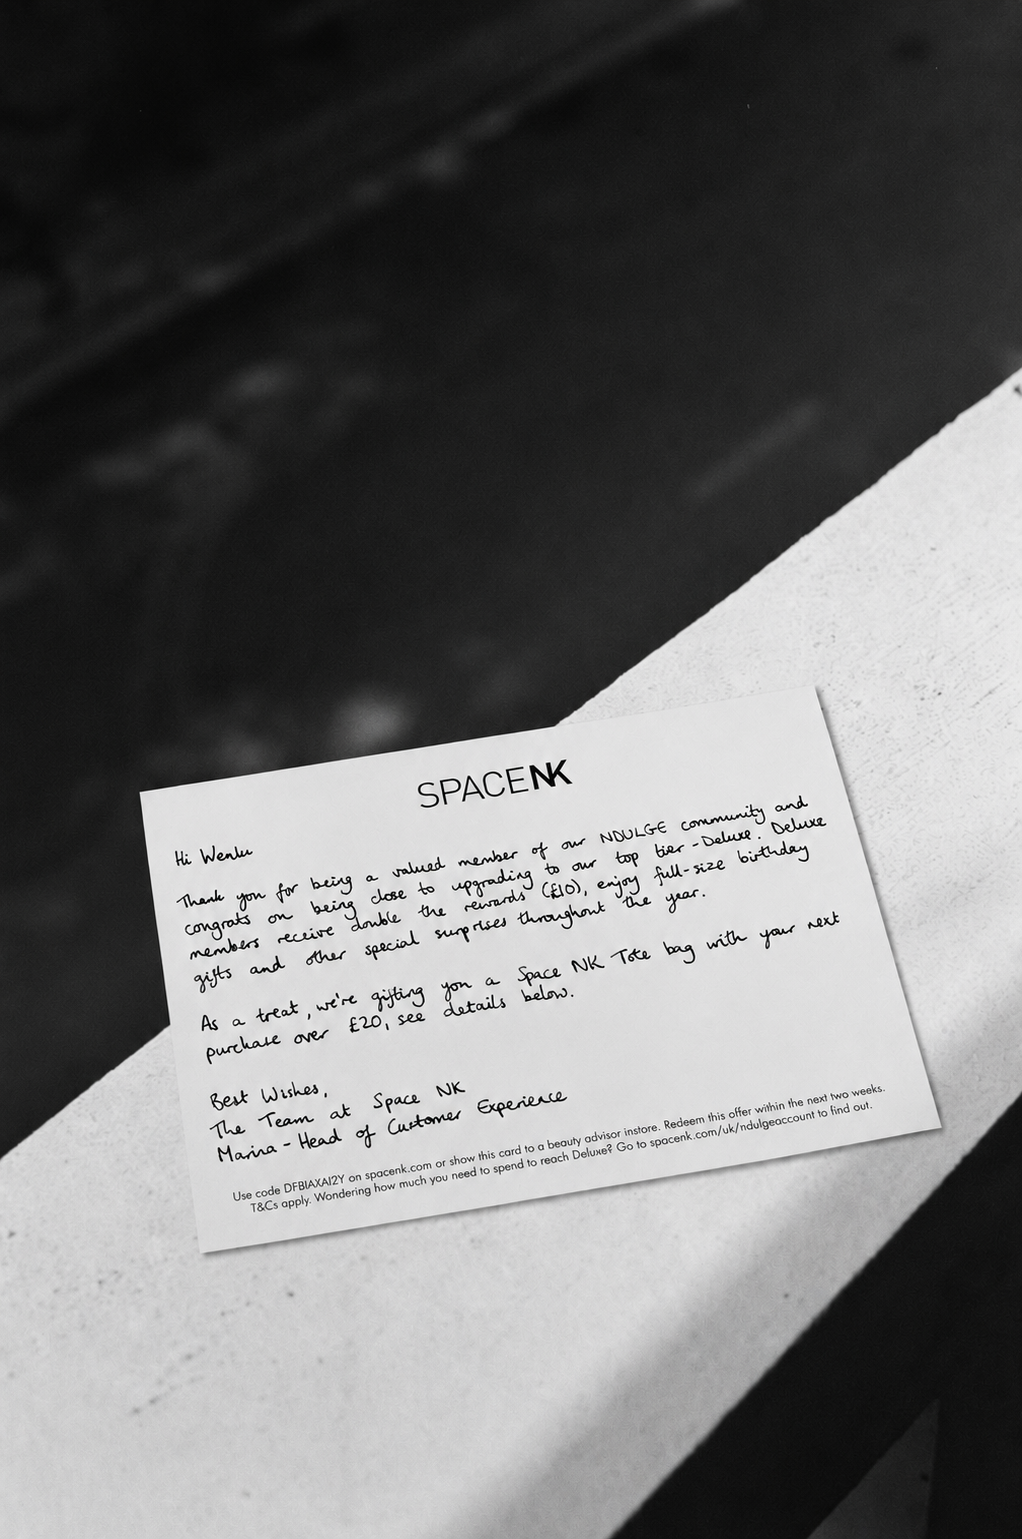 SPACENK
Hi Wenlu
Thank you for being a valued member of our NDULGE community and
congrats on being close to upgrading to our top tier - Deluxe. Deluxe
members receive double the rewards (£10), enjoy full-size birthday
gifts and other special surprises throughout the year.
As a treat, we're gifting you a Space NK Tote bag with your next
purchase over £20, see details below.
Best Wishes,
The Team at Space NK
Marina - Head of Customer Experience
Use code DFBIAXAI2Y on spacenk.com or show this card to a beauty advisor instore. Redeem this offer within the next two weeks.
T&Cs apply. Wondering how much you need to spend to reach Deluxe? Go to spacenk.com/uk/ndulgeaccount to find out.